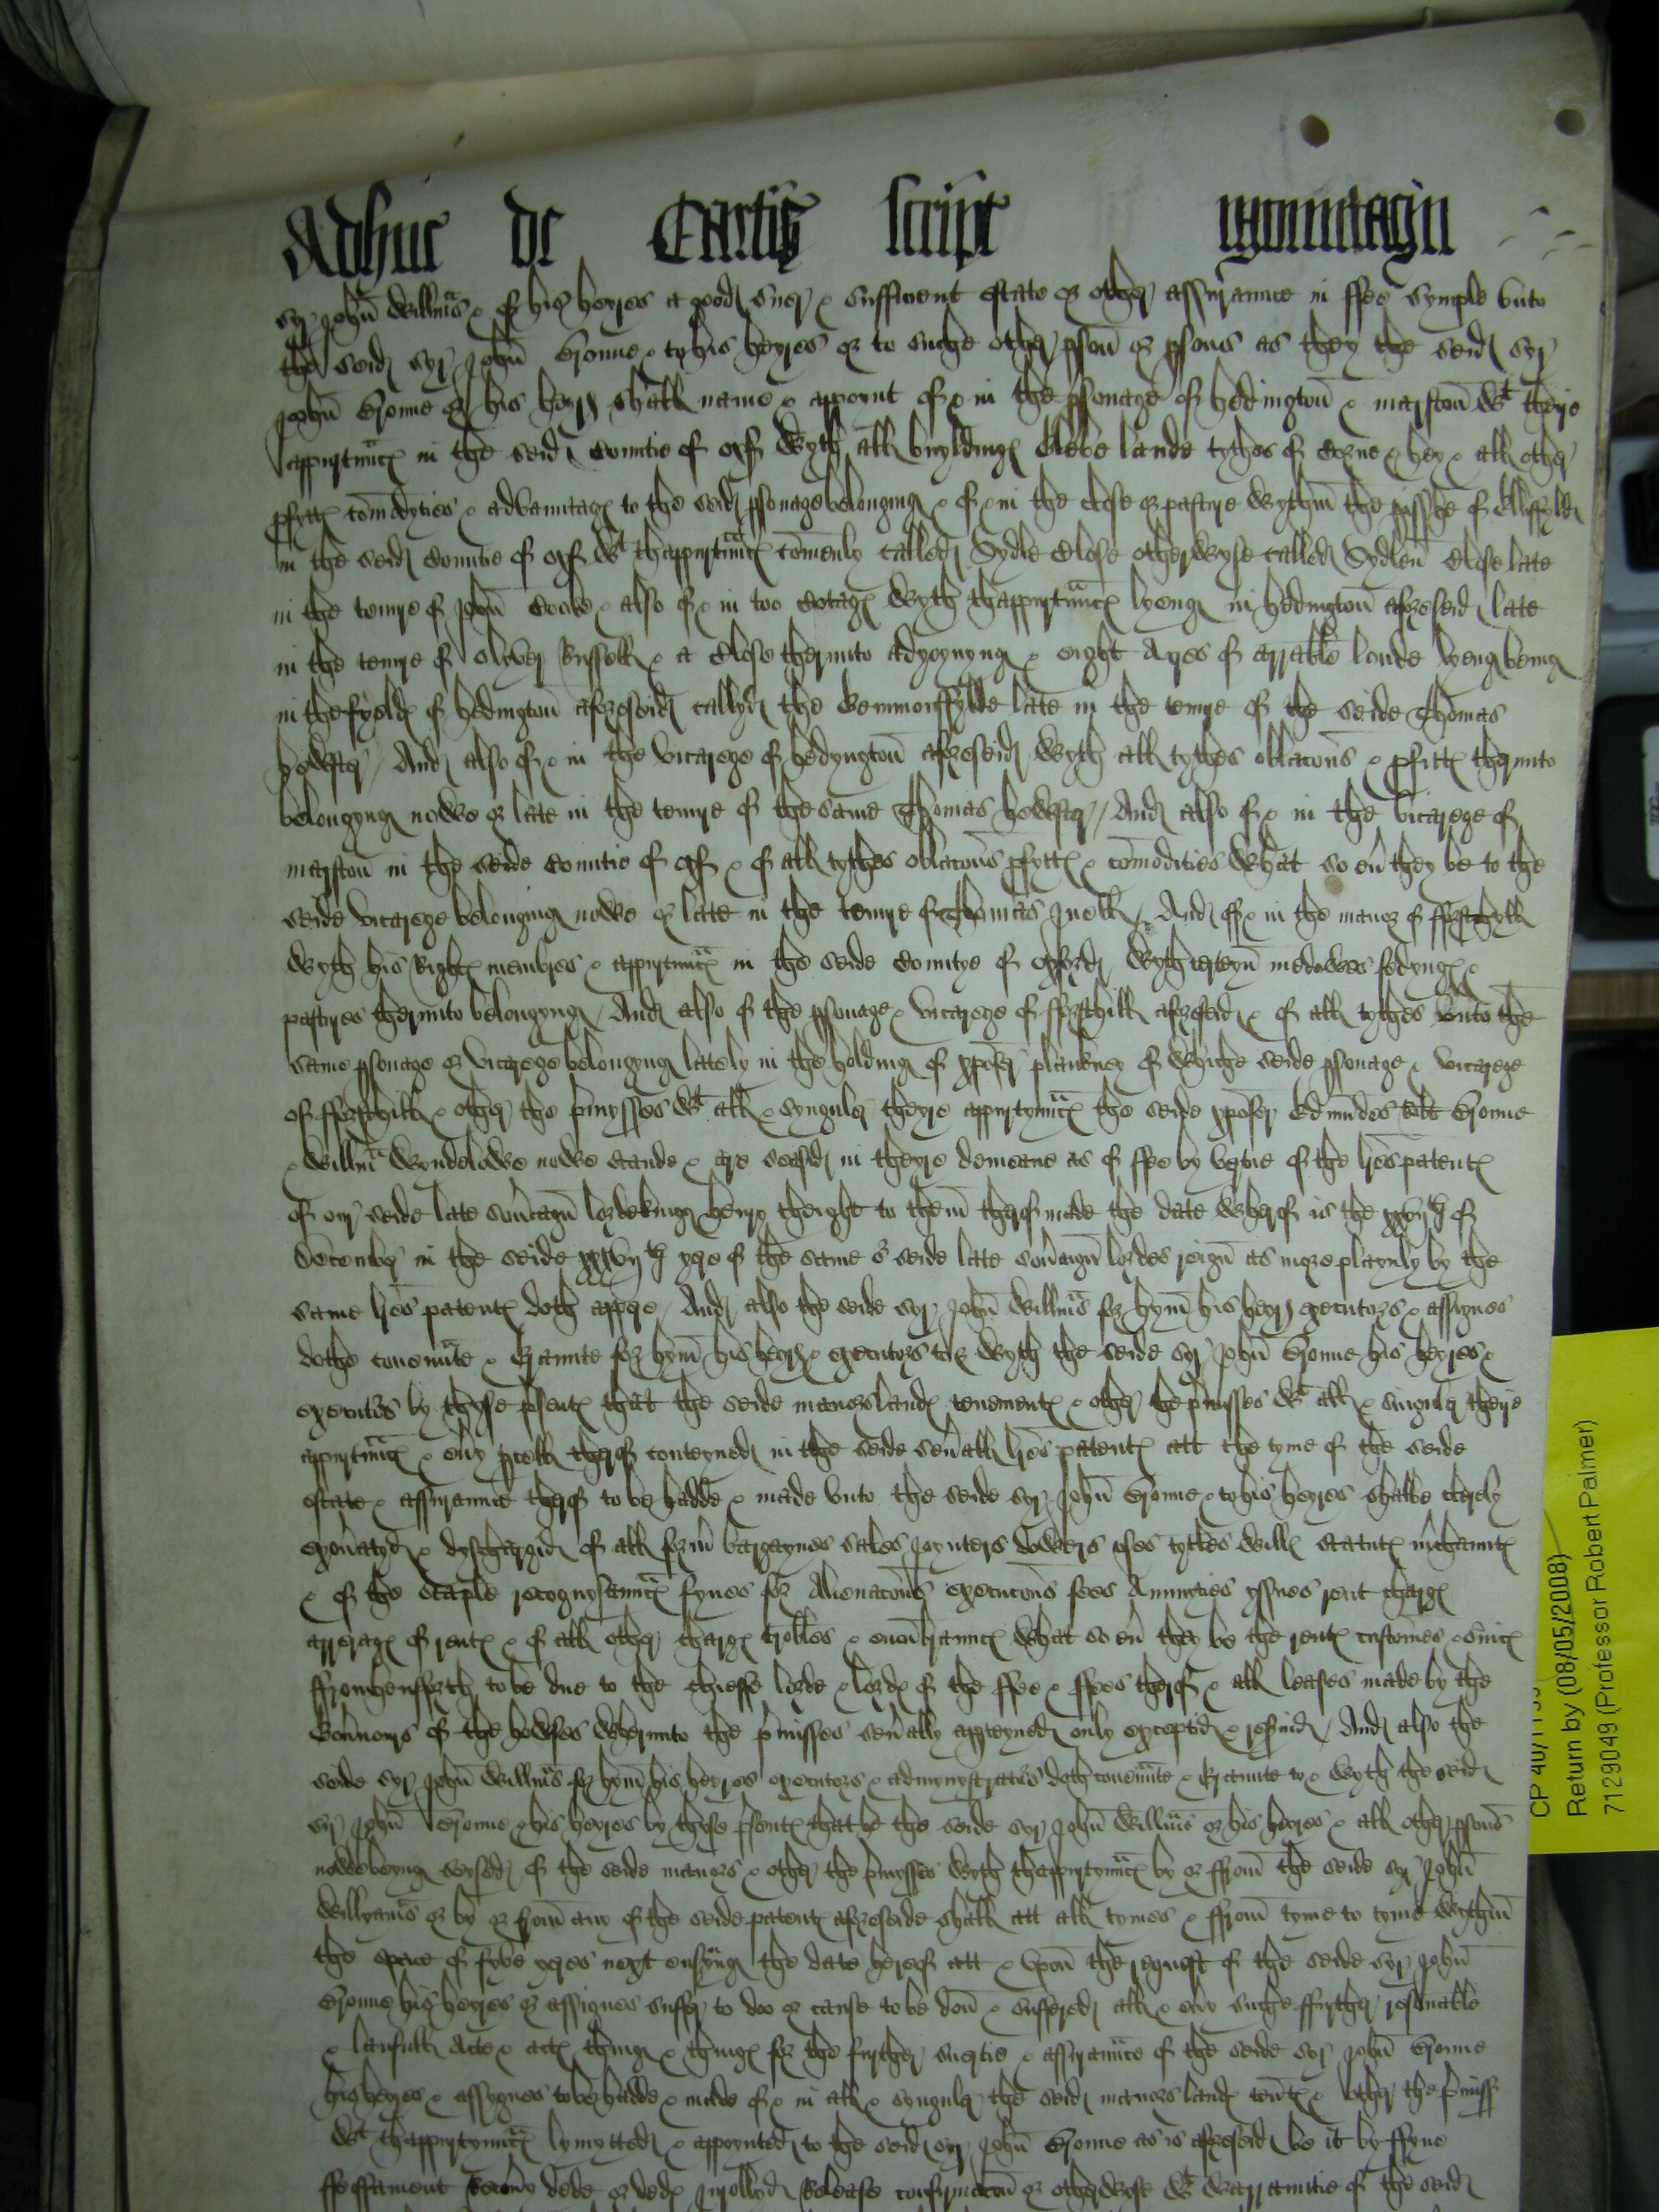 Adhuc de Cartis script
Syr John Willms & of his heyres a good suer & sufficient estate or other assuraunce in ffee symple vnto
the seid Syr John Bronne & to his heyres or to suche other pson or psons as they the seid Syr
John Bronne or his heyrs shall name & appoynt of & in the psonage of hedington & marston wt theyre
appurtunncs in the seid Countie of oxf wyth all buyldings Glebe lande tythes of Corne & hey & all other
pfytts comodyties & advanntags to the seid psonage belonging & of & in the close or pasture wythin the pisshe of
in the seid Countie of oxf wt thappurtunncs comenly called Sydle Close otherwyse called Sydlen Close late
in the tenure of John & also of & in too Cotags wyth thappurtunncs lyeng in hedington aforeseid late
in the tenure of Olyver Russell & a Close therunto adyoynyng & eight Acres of arrable londe lyeng & being
in the fyelds of hedington aforeseid callyd the late in the tenure of the seide Thomas
And also of & in the vicarege of hedyngton aforeseid wyth all tythes oblacons & pfitts therunto
belongyng nowe or late in the tenure of the same Thomas And also of & in the vicarege of
marston in the seide Countie of oxf & of all tythes oblacons pfytts & comodities what so eu they be to the
seide vicarege belonging nowe or late in the tenure of Thomas And of & in the manor of fforsthyll
wyth his Rights membres & appurtunncs in the seide Countye of oxford wyth certeyn medowes fedyngs &
pastures therunto belongyng And also of the psonage & vicarege of fforsthill aforeseid & of all tythes vnto the
same psonage or vicarege belongyng lately in the holding of xpofer plankney of whiche seide psonage & vicarege
of fforsthill & other the pmysses wt all & synguler theyre appurtynncs the seide xpofer Edmudes Robt Bronne
& Willm Wyndelowe nowe stande & are seasid in theyre demeane as of ffee by vertue of the lres patents
of our seide late souaign lorde king henry theight to them therof made the date wherof is the of
December in the seide yere of the same or seide late souaign lordes reign as more playnly by the
same lres patents doth appere And also the seide Syr John Willms for hym his heyrs executors & assignes
dothe couennte & Graunte for hym his heyrs & executors to & wyth the seide Syr John Bronne his heyres &
executors by thyse psents that the seide manors lands tenements & other the pmisses wt all & singuler theyre
appurtunncs & euy pcell therof conteyned in the seide seuall lres patents att the tyme of the seide
estate & assuraunce therof to be hadde & made vnto the seide Syr John Bronne & to his heyres shalbe clerely
exonatyd & dyschargid of all form bargaynes sales Joynters dowers vses tytles wills statuts mchaunts
& of the staple recognysanncs fynes for Alienacons execucons fees Annuities yssues rent chargs
arrerags of rents & of all other chargs trobles & encubranncs what so eu they be the rents customes & suics
ffromhensforth to be due to the chieffe lorde & lords of the ffee & ffees therof & all leases made by the
Gounors of the howses wherunto the pmisses seually apperteyned only exceptid & resuid And also the
seide Syr John Willms for hym his heyres executors & admynystrators doth couennte & Graunte to & wyth the seid
Syr John Bronne & his heyres by thyse psents that he the seide Syr John Willms or his heyres & all other psons
nowe beyng seysed of the seide manors & other the pmysses wyth thappurtynncs by or ffrom the seide Syr John
Willyams or by or from any of the seide patents aforeseide shall att all tymes & ffrom tyme to tyme wythin
the space of fyve yeres next ensuyng the date hereof att & vpon the request of the seide Syr John
Bronne his heyres or assignes suffer to doo or cause to be don & suffered all & euy suche ffurther resonable
& laufull Acte & acts thing & things for the further suertie & assuraunce of the seide Syr John Bronne
his heyres & assygnes to be hadde & made of & in all & synguler the seid manors lands tents & other the pmiss
wt thappurtynncs lymytted & appoynted to the seid Syr John Bronne as is aforeseid be it by ffyne
ffeffament recouy dede or deds Inrollyd Release confirmacon or otherwyse wt warrauntie of the seid
CP 40/1153
Return by (08/05/2008)
7129049 (Professor Robert Palmer)